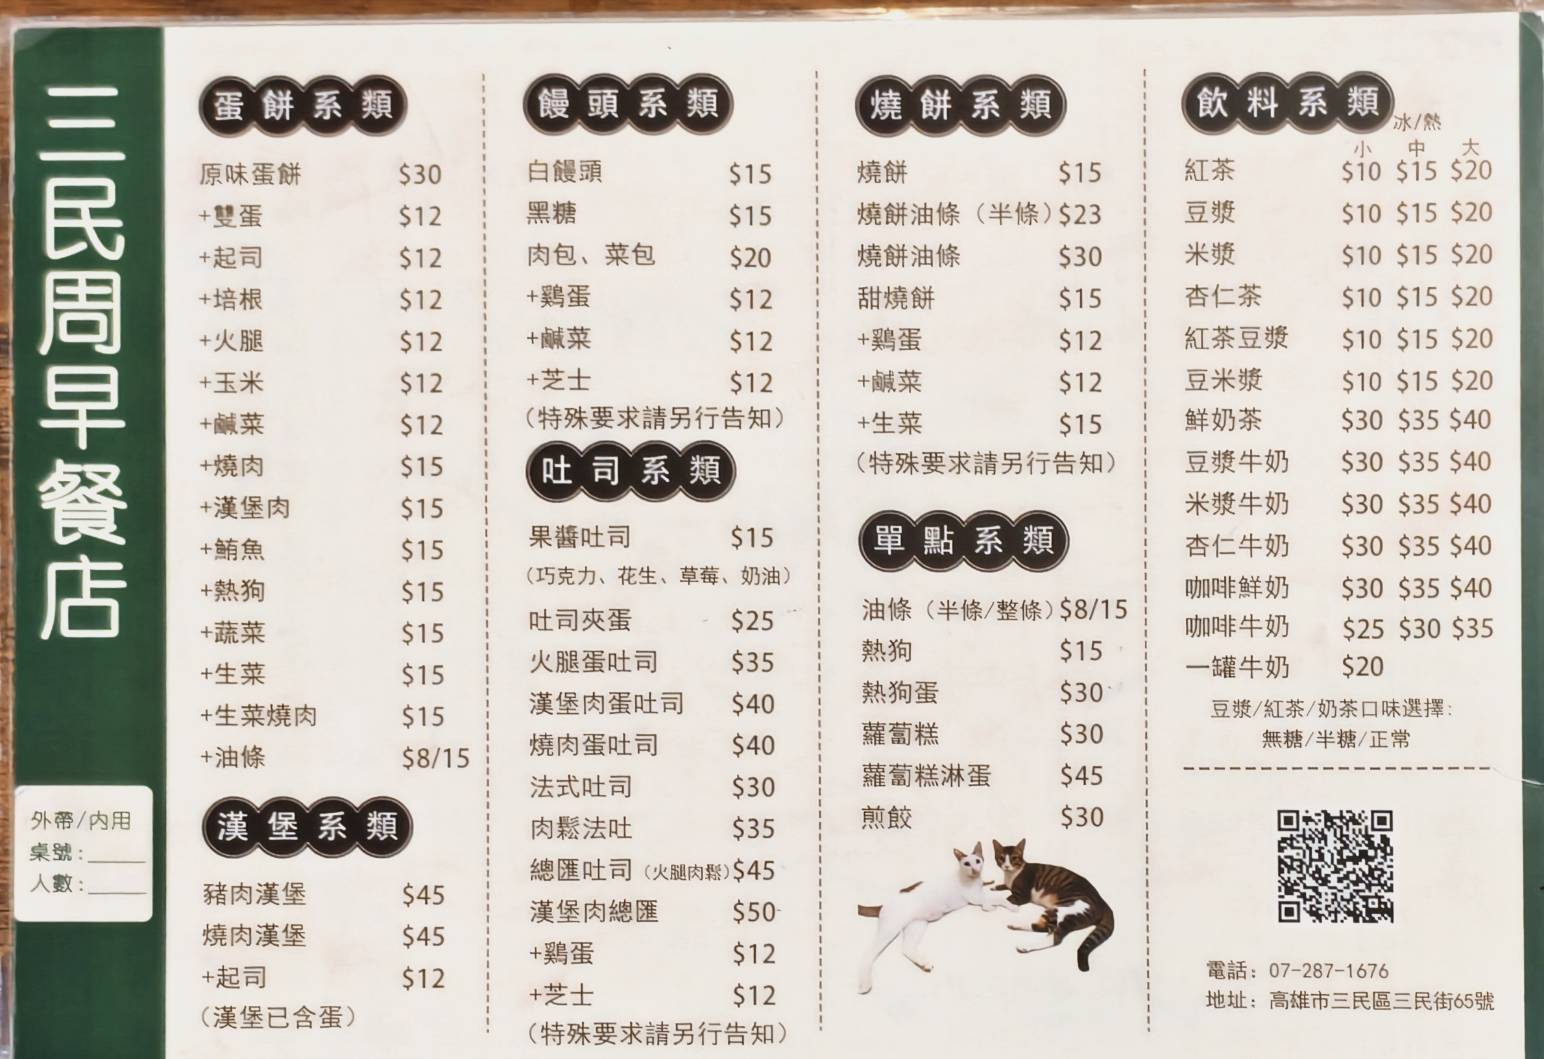 三民周早餐店
外帶/內用
桌號:
人數:
蛋餅系類
原味蛋餅 $30
+雙蛋 $12
+起司 $12
+培根 $12
+火腿 $12
+玉米 $12
+鹹菜 $12
+燒肉 $15
+漢堡肉 $15
+鮪魚 $15
+熱狗 $15
+蔬菜 $15
+生菜 $15
+生菜燒肉 $15
+油條 $8/15
漢堡系類
豬肉漢堡 $45
燒肉漢堡 $45
+起司 $12
(漢堡已含蛋)
饅頭系類
白饅頭 $15
黑糖 $15
肉包、菜包 $20
+鷄蛋 $12
+鹹菜 $12
+芝士 $12
(特殊要求請另行告知)
吐司系類
果醬吐司 $15
(巧克力、花生、草莓、奶油)
吐司夾蛋 $25
火腿蛋吐司 $35
漢堡肉蛋吐司 $40
燒肉蛋吐司 $40
法式吐司 $30
肉鬆法吐 $35
總匯吐司(火腿肉鬆) $45
漢堡肉總匯 $50
+鷄蛋 $12
+芝士 $12
(特殊要求請另行告知)
燒餅系類
燒餅 $15
燒餅油條(半條) $23
燒餅油條 $30
甜燒餅 $15
+鷄蛋 $12
+鹹菜 $12
+生菜 $15
(特殊要求請另行告知)
單點系類
油條(半條/整條) $8/15
熱狗 $15
熱狗蛋 $30
蘿蔔糕 $30
蘿蔔糕淋蛋 $45
煎餃 $30
飲料系類
冰/熱
小 中 大
紅茶 $10 $15 $20
豆漿 $10 $15 $20
米漿 $10 $15 $20
杏仁茶 $10 $15 $20
紅茶豆漿 $10 $15 $20
豆米漿 $10 $15 $20
鮮奶茶 $30 $35 $40
豆漿牛奶 $30 $35 $40
米漿牛奶 $30 $35 $40
杏仁牛奶 $30 $35 $40
咖啡鮮奶 $30 $35 $40
咖啡牛奶 $25 $30 $35
一罐牛奶 $20
豆漿/紅茶/奶茶口味選擇:
無糖/半糖/正常
電話: 07-287-1676
地址: 高雄市三民區三民街65號